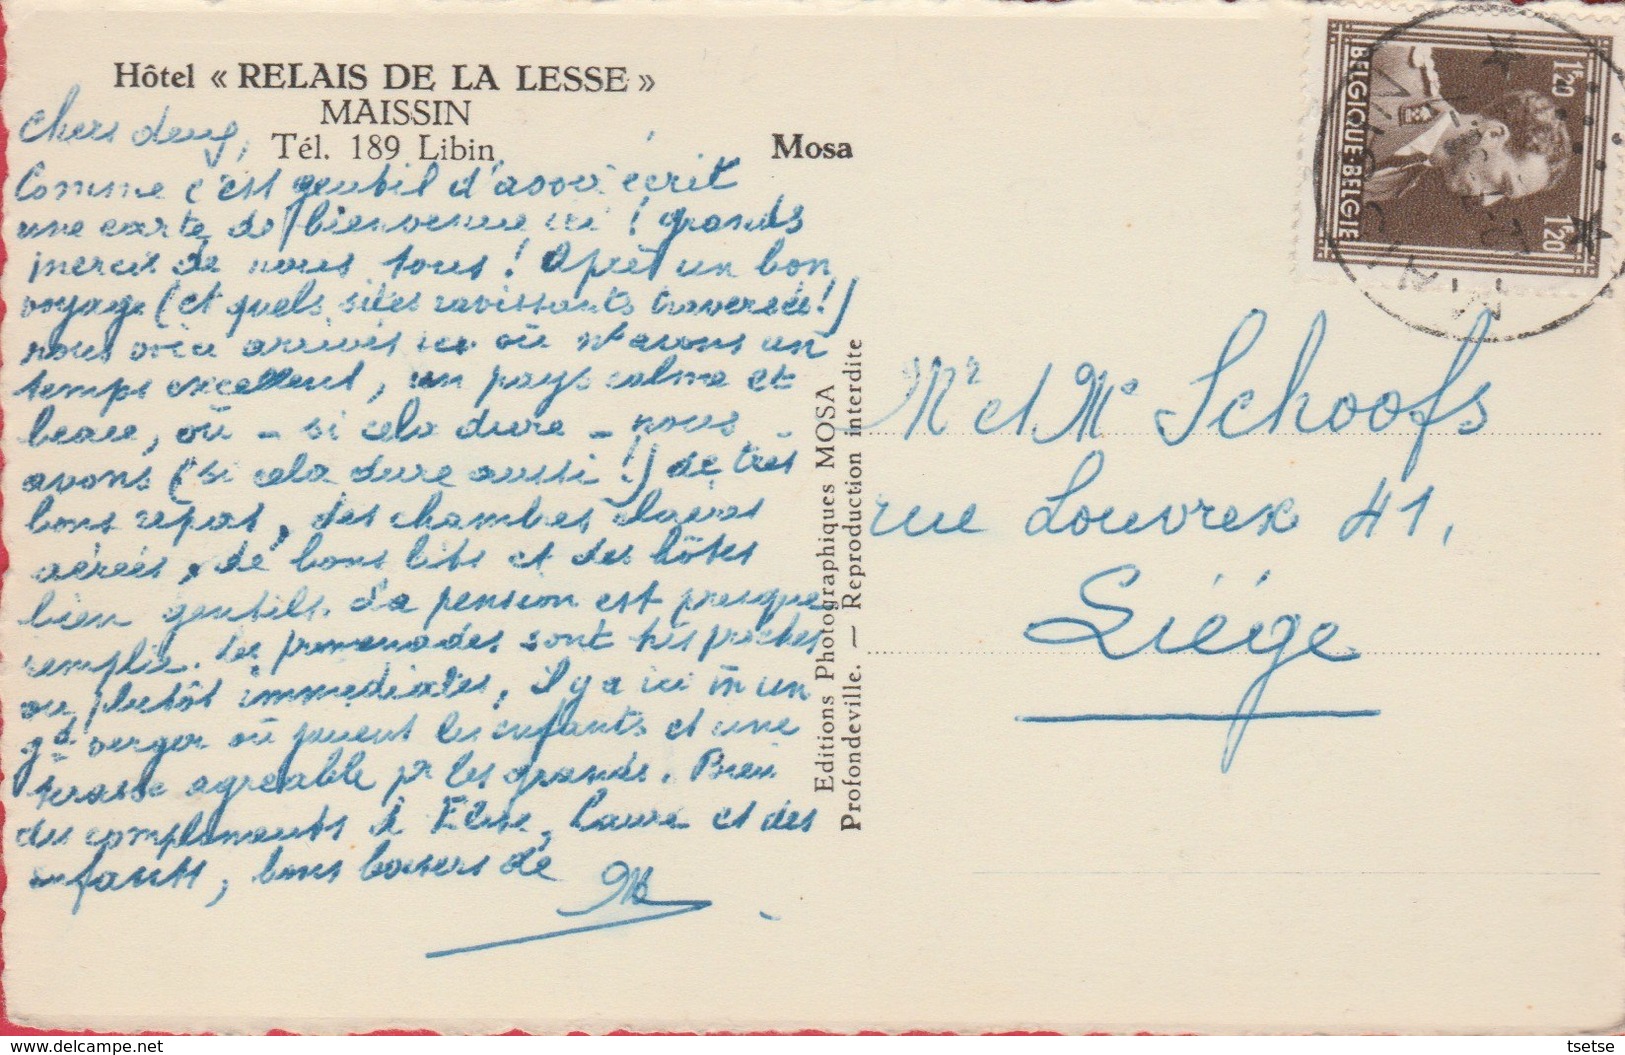 Hôtel « RELAIS DE LA LESSE »
MAISSIN
Tél. 189 Libin
Mosa
Chers deux,
Comme c'est gentil d'avoir écrit
une carte de bienvenue ici ! grands
mercis de nous tous ! Après un bon
voyage (et quels sites ravissants traversés !)
nous voici arrivés ici où ns avons un
temps excellent, un pays calme et
beau, où – si cela dure – nous
avons (si cela dure aussi !) de très
bons repas, des chambres claires
aérées, de bons lits et des hôtes
bien gentils. La pension est presque
remplie. Les promenades sont très proches
ou plutôt immédiates, il y a ici un
gd verger où jouent les enfants et une
terasse agréable pr les grands. Bien
des compliments à Elise, Laure et des
enfants, bons baisers de
Editions Photographiques MOSA
Profondeville. — Reproduction interdite
BELGIQUE-BELGIE
1F20
1F20
Mr et Me Schoofs
rue Louvrex 41,
Liége
tsetse